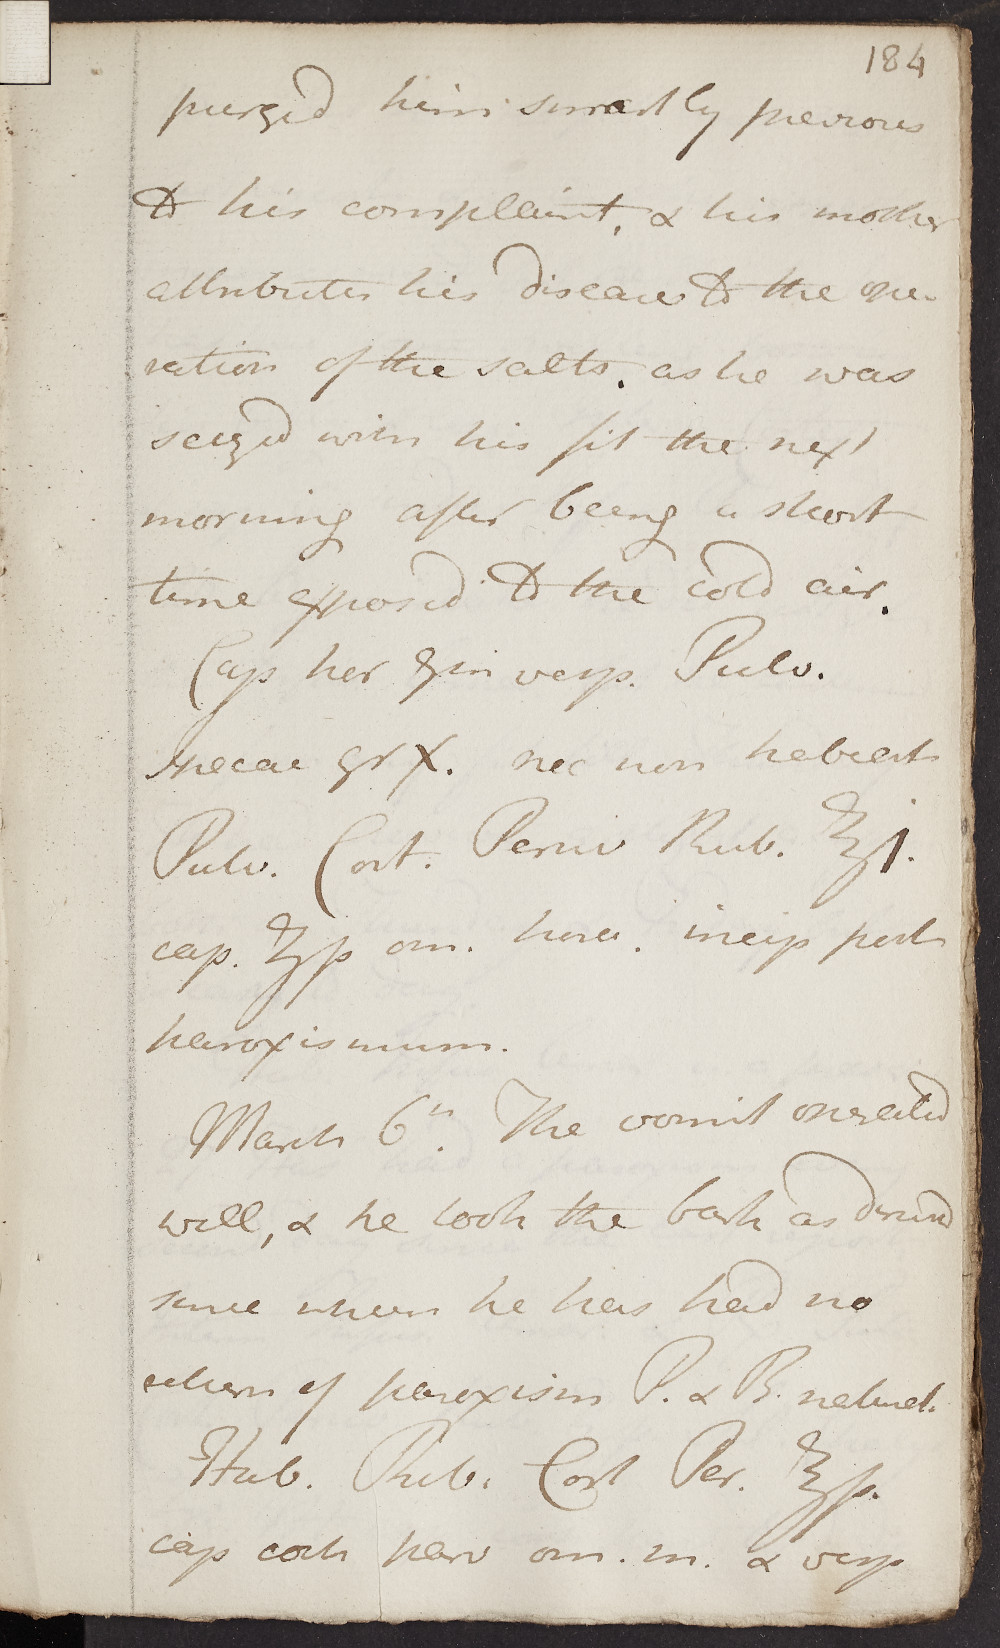 184
purged him smartly previous
to his complaint, & his mother
attributes his disease to the ope-
ration of the salts. as he was
seized with his fit the next
morning after being a short
time exposed to the cold air.
Cap her vesp. Pulv.
Ipecac gr X. nec non habeat
Pulv. Cort. Peruv Rub. ℥j.
cap. om. hora. incip post
paroxismum.
March 6th. The vomit operated
well, & he took the bark as
since when he has had no
return of paroxism P. & B. natural.
Hab. Pulv. Cort Per. ℥
cap coch parv om. m. & vesp